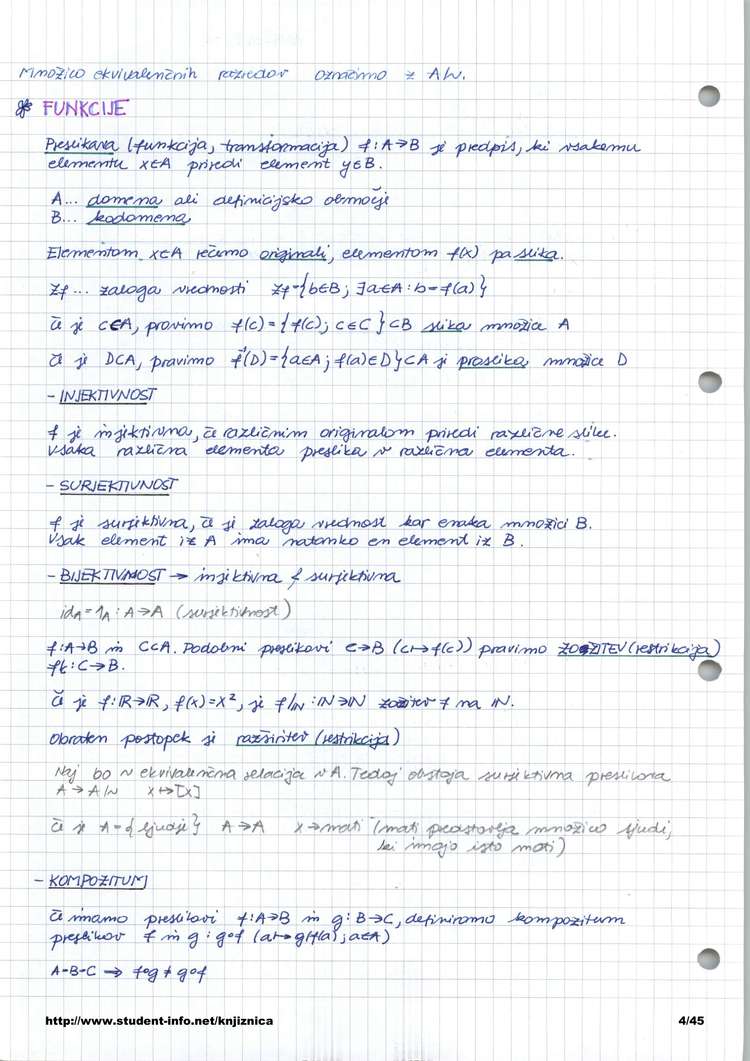 Množico ekvivalenčnih razredov označimo z A/~.
* FUNKCIJE
Preslikava (funkcija, transformacija) f: A→B je predpis, ki vsakemu
elementu x∈A priredi element y∈B.
A... domena ali definicijsko območje
B... kodomena
Elementom x∈A rečemo originali, elementom f(x) pa slika.
Zf ... zaloga vrednosti Zf={b∈B; ∃a∈A: b=f(a)}
Če je C⊂A, pravimo f(C)={f(c); c∈C}⊂B slika množice A
Če je D⊂A, pravimo f⁻¹(D)={a∈A; f(a)∈D}⊂A je praslika množice D
- INJEKTIVNOST
f je injektivna, če različnim originalom priredi različne slike.
Vsaka različna elementa preslika v različna elementa.
- SURJEKTIVNOST
f je surjektivna, če je zaloga vrednost kar enaka množici B.
Vsak element iz A ima natanko en element iz B.
- BIJEKTIVNOST → injektivna & surjektivna
id_A = 1_A : A→A (surjektivnost)
f: A→B in C⊂A. Podobni preslikavi C→B (c↦f(c)) pravimo ZOŽITEV (restrikcija)
f|c: C→B.
Če je f: ℝ→ℝ, f(x)=x², je f/ℕ : ℕ→ℕ zožitev f na ℕ.
Obraten postopek je razširitev (restrikcija)
Naj bo ~ ekvivalenčna relacija v A. Tedaj obstaja surjektivna preslikava
A→A/~ x↦[x]
Če je A={ljudje} A→A x→mati (mati predstavlja množico ljudi,
ki imajo isto mati)
- KOMPOZITUM
Če imamo preslikavi f: A→B in g: B→C, definiramo kompozitum
preslikav f in g : g∘f (a↦g(f(a); a∈A)
A=B=C → f∘g ≠ g∘f
http://www.student-info.net/knjiznica 4/45